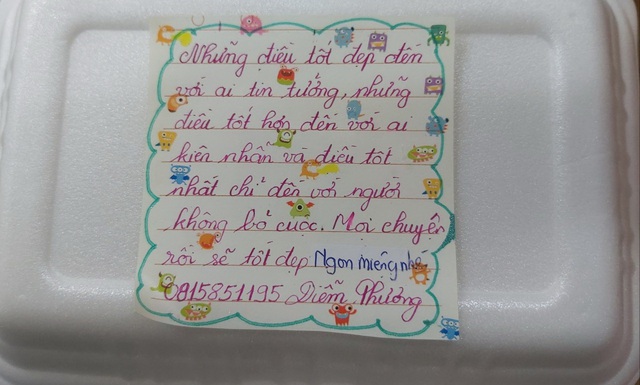 Những điều tốt đẹp đến
với ai tin tưởng, những
điều tốt hơn đến với ai
kiên nhẫn và điều tốt
nhất chỉ đến với người
không bỏ cuộc. Mọi chuyện
rồi sẽ tốt đẹp Ngon miệng nhé
0815851195 Diễm Phương